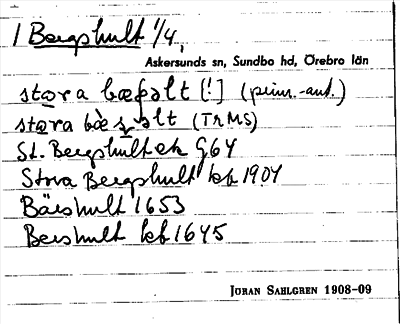 1 Bergshult 1/4
Askersunds sn, Sundbo hd, Örebro län
stora bæsəlt [!] (prim.-ant.)
stora bæ̀ṣəlt (TrMS)
St. Bergshult ek G64
Stora Bergshult kb 1904
Bärshult 1653
Bershult kb 1645
JÖRAN SAHLGREN 1908-09